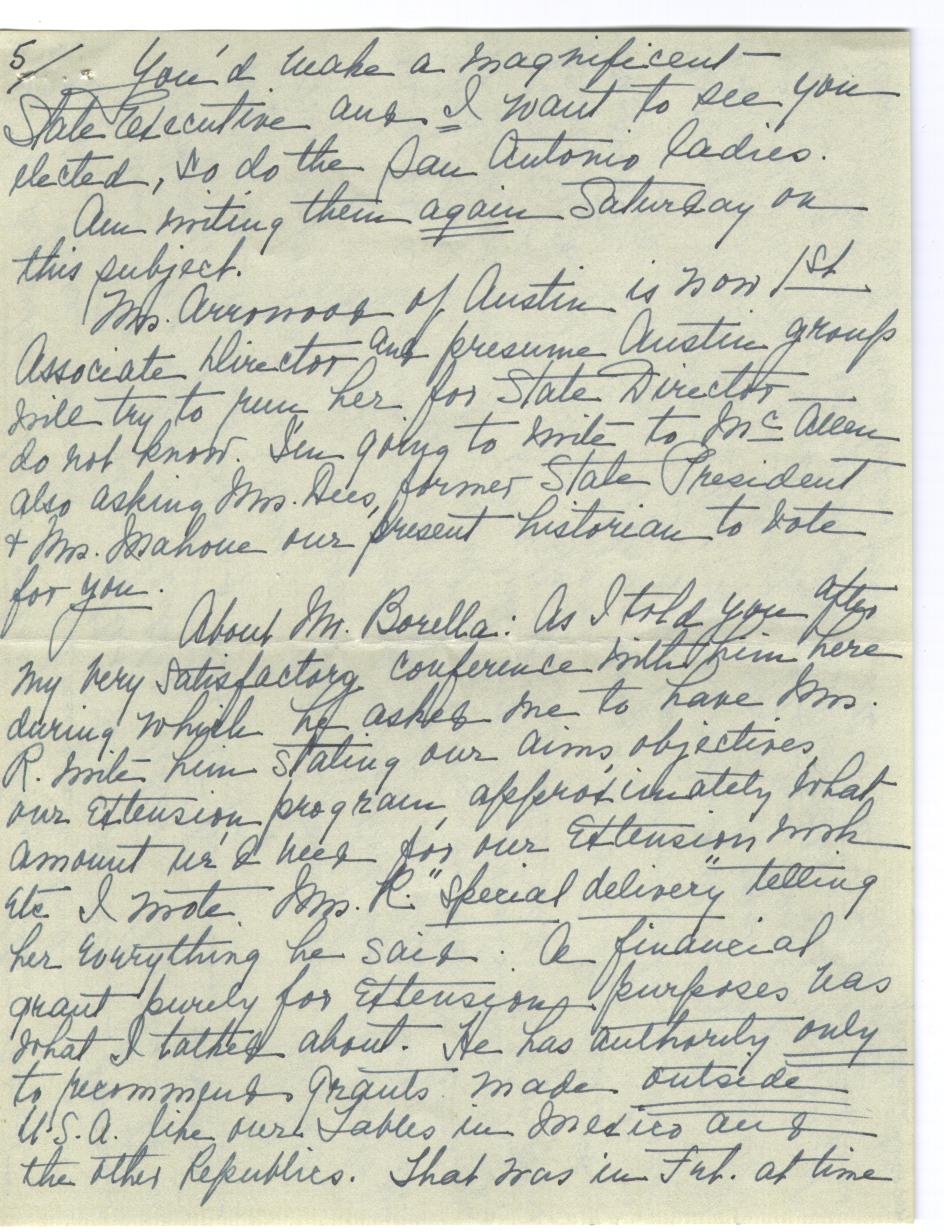 5/ You'd make a magnificent
State Executive and I want to see you
elected, so do the San Antonio ladies.
Am writing them again Saturday on
this subject.
Mrs. Arrowood of Austin is now 1st
Associate Director and presume Austin groups
will try to run her for State Director —
do not know. I'm going to write to McAllen
also asking Mrs. Dees, former State President
& Mrs. Mahone our present historian to vote
for you.
About Mr. Borella: As I told you after
my very satisfactory conference with him here
during which he asked me to have Mrs.
R. write him stating our aims, objectives,
our Extension program, approximately what
amount we'd need for our Extension work
etc I wrote Mrs. R. "special delivery" telling
her everything he said. A financial
grant purely for Extension purposes was
what I talked about. He has authority only
to recommend grants made outside
U.S.A. like our Tables in Mexico and
the other Republics. That was in Feb. at time